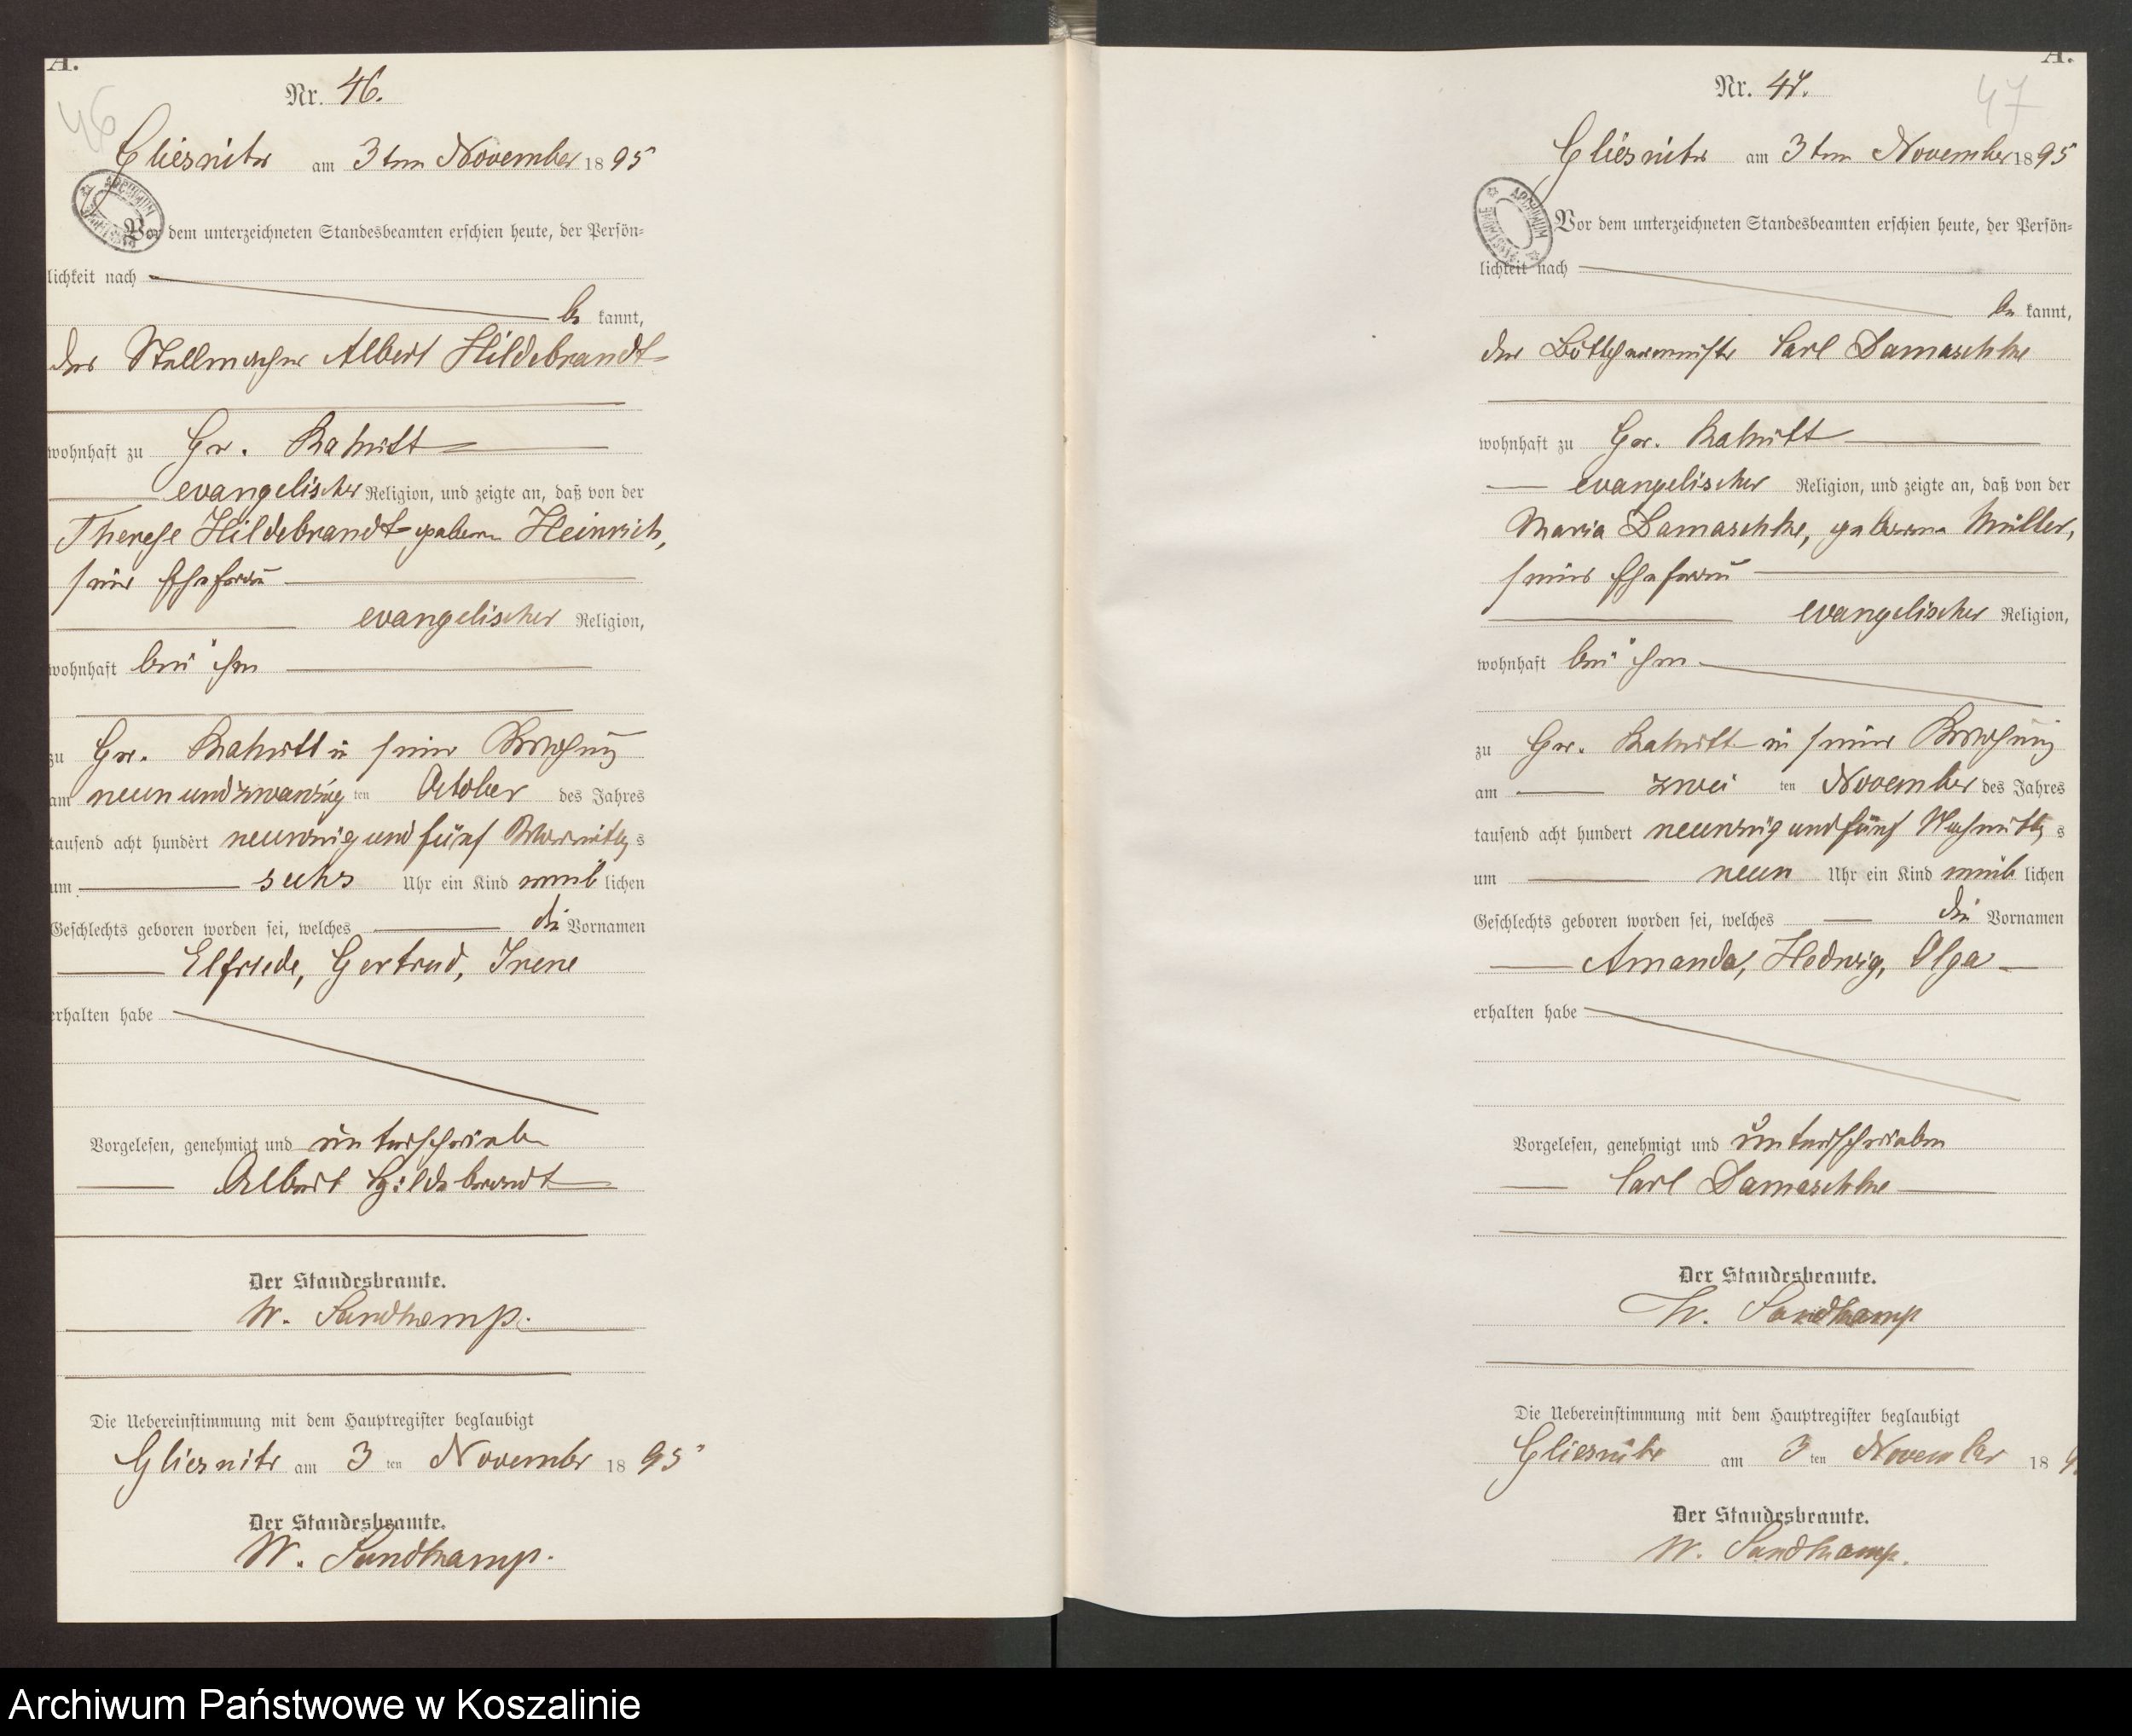 A.
Nr. 46.
46
Gliesnitz am 3ten November 1895
Vor dem unterzeichneten Standesbeamten erschien heute, der Persön=
lichkeit nach
be kannt,
der Stellmacher Albert Hildebrandt
wohnhaft zu Gr. Rakitt
evangelischer Religion, und zeigte an, daß von der
Therese Hildebrandt geborne Heinrich,
seiner Ehefrau
evangelischer Religion,
wohnhaft bei ihm
zu Gr. Rakitt in seiner Wohnung
am neunundzwanzig ten October des Jahres
tausend acht hundert neunzig und fünf Vormittag s
um sechs Uhr ein Kind weib lichen
Geschlechts geboren worden sei, welches die Vornamen
Elfriede, Gertrud, Irene
erhalten habe
Vorgelesen, genehmigt und unterschrieben
Albert Hildebrandt
Der Standesbeamte.
W. Sandkamp.
Die Uebereinstimmung mit dem Hauptregister beglaubigt
Gliesnitz am 3 ten November 18 95
Der Standesbeamte.
W. Sandkamp.
A.
Nr. 47.
47
Gliesnitz am 3ten November 1895
Vor dem unterzeichneten Standesbeamten erschien heute, der Persön=
lichkeit nach
be kannt,
der Böttchermeister Carl Damaschke
wohnhaft zu Gr. Rakitt
evangelischer Religion, und zeigte an, daß von der
Maria Damaschke, geborene Müller,
seiner Ehefrau
evangelischer Religion,
wohnhaft bei ihm
zu Gr. Rakitt in seiner Wohnung
am zwei ten November des Jahres
tausend acht hundert neunzig und fünf Nachmittag s
um neun Uhr ein Kind weib lichen
Geschlechts geboren worden sei, welches die Vornamen
Amanda, Hedwig, Olga
erhalten habe
Vorgelesen, genehmigt und unterschrieben
Carl Damaschke
Der Standesbeamte.
W. Sandkamp
Die Uebereinstimmung mit dem Hauptregister beglaubigt
Gliesnitz am 3 ten November 18 9
Der Standesbeamte.
W. Sandkamp.
Archiwum Państwowe w Koszalinie